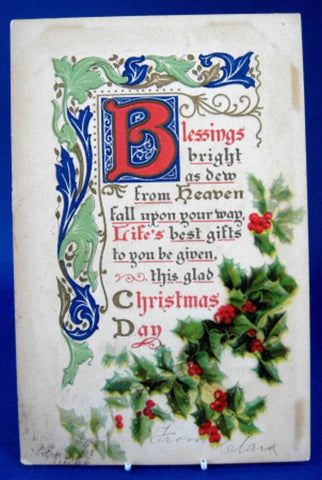 Blessings
bright
as dew
from Heaven
fall upon your way,
Life's best gifts
to you be given,
this glad
Christmas
Day
From Clara